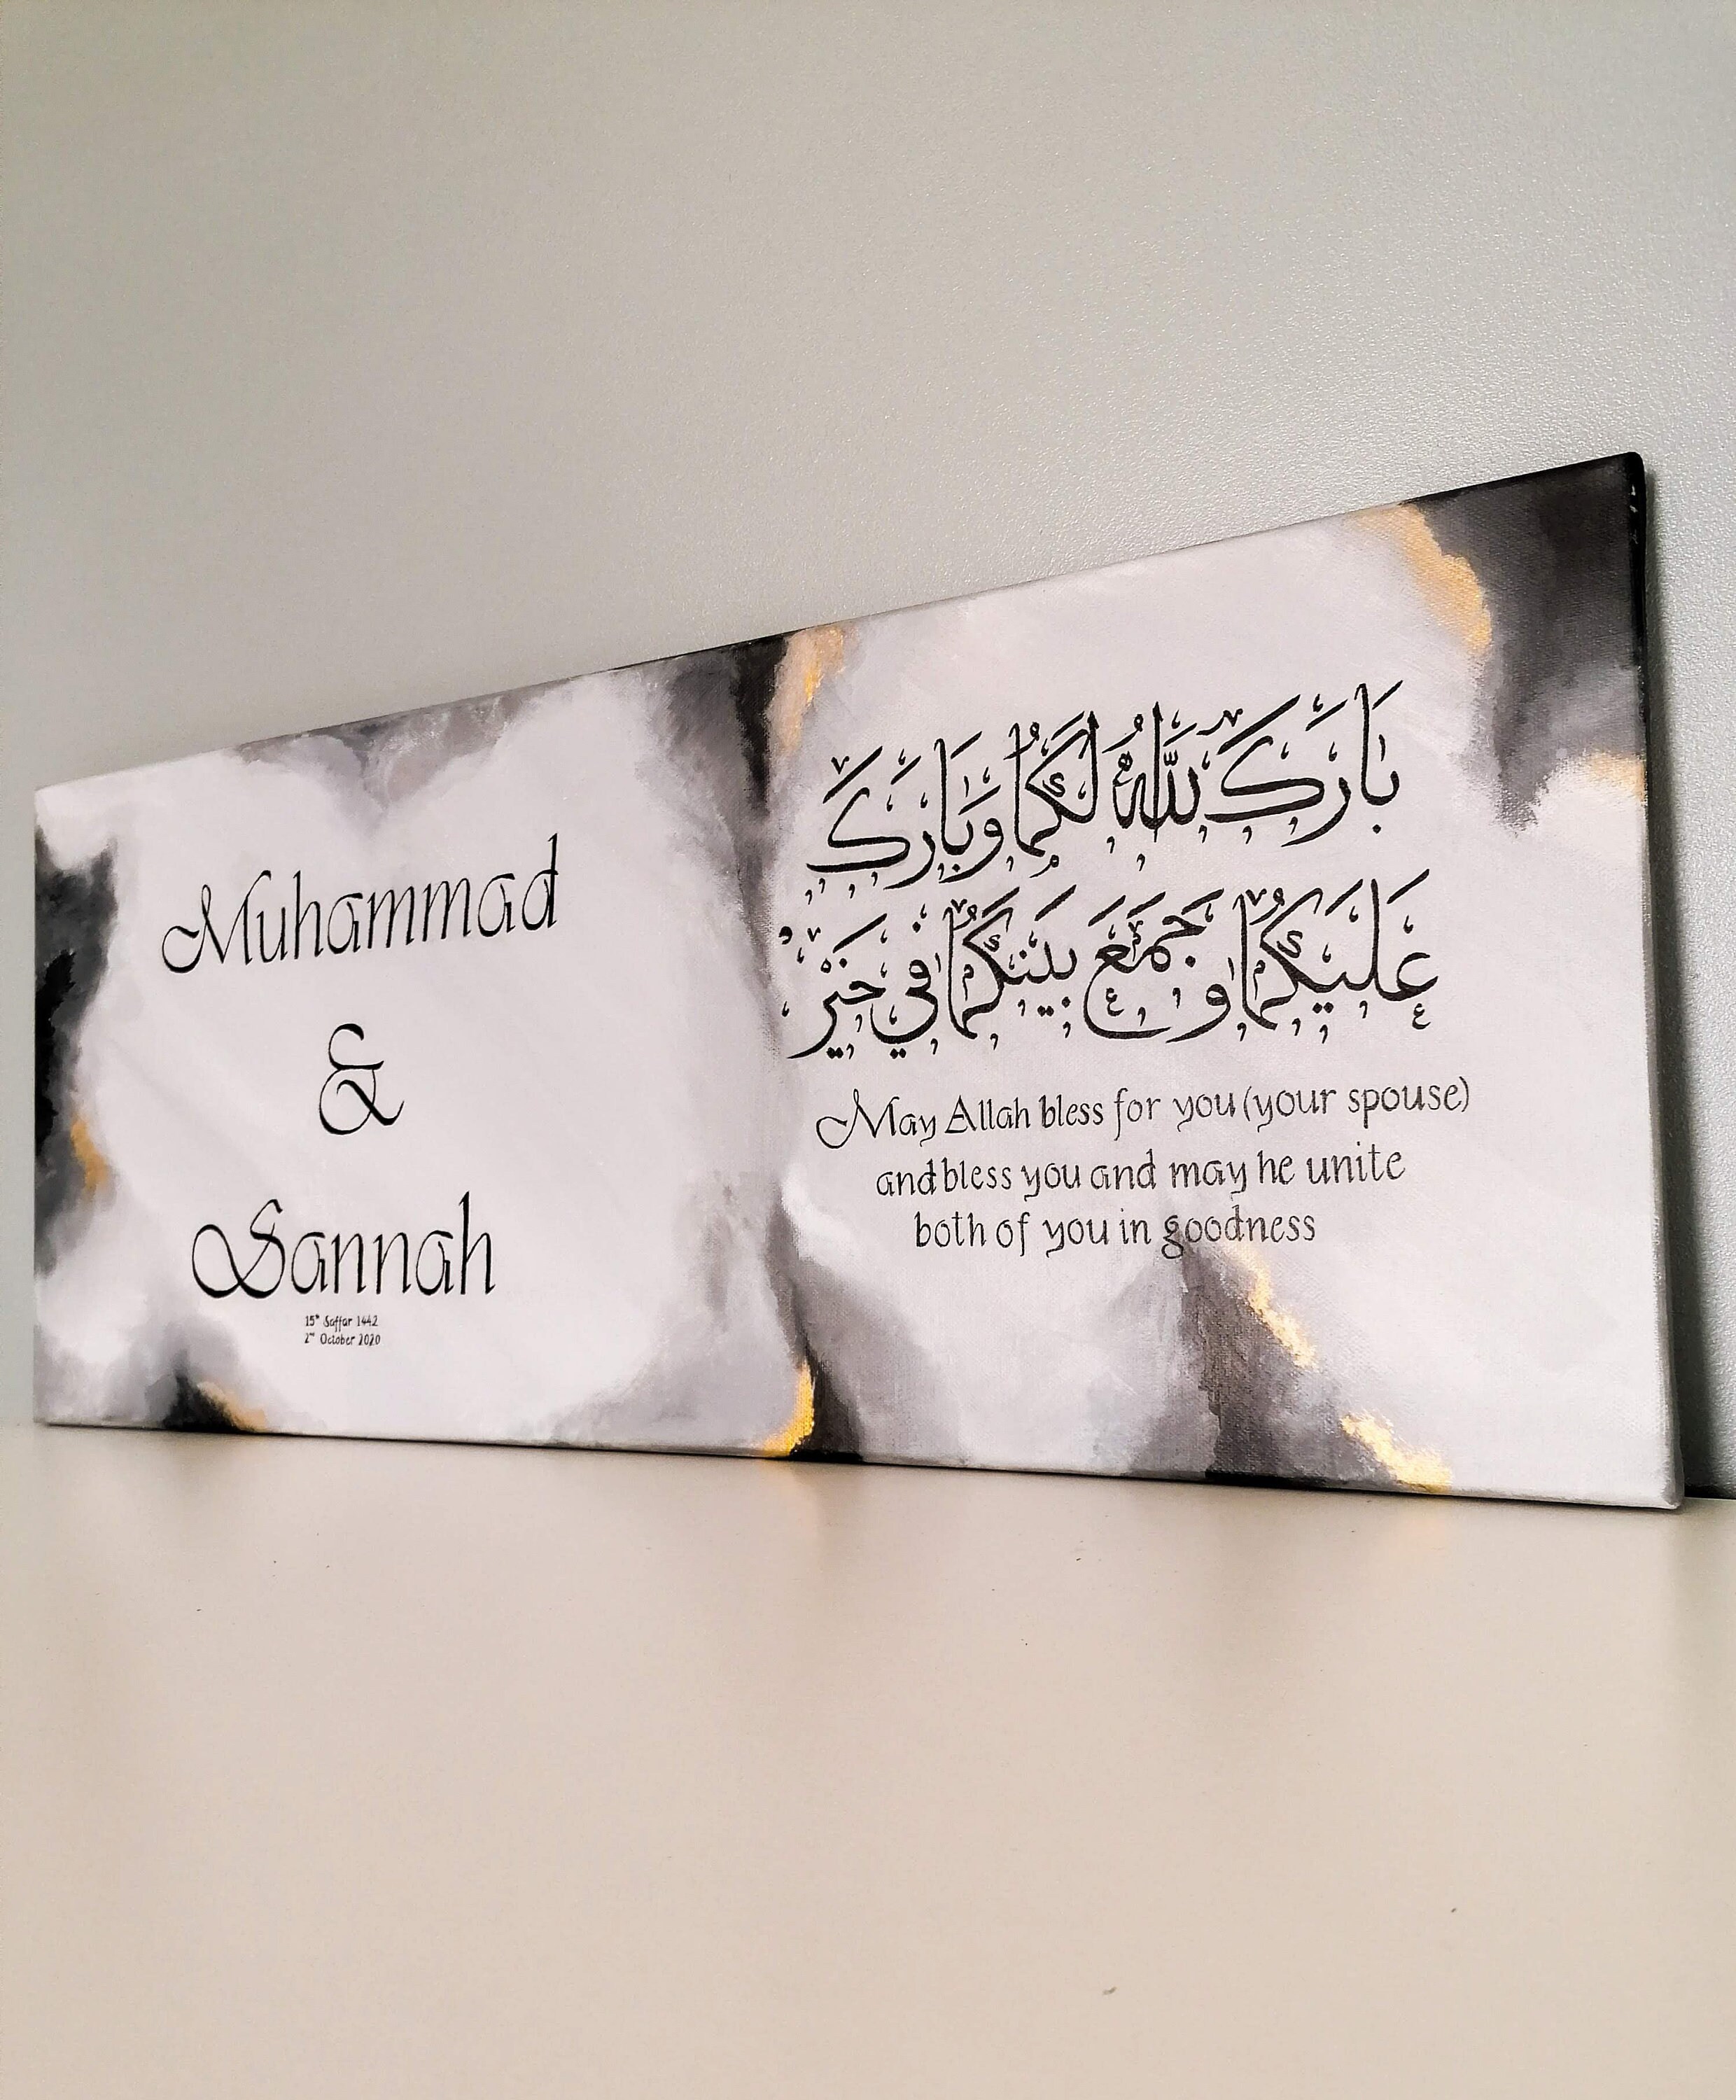 Muhammad
&
Sannah
15th Saffar 1442
2nd October 2020
بَارَكَ اللّٰهُ لَكُمَا وَبَارَكَ
عَلَيْكُمَا وَجَمَعَ بَيْنَكُمَا فِي خَيْرٍ
May Allah bless for you (your spouse)
and bless you and may he unite
both of you in goodness